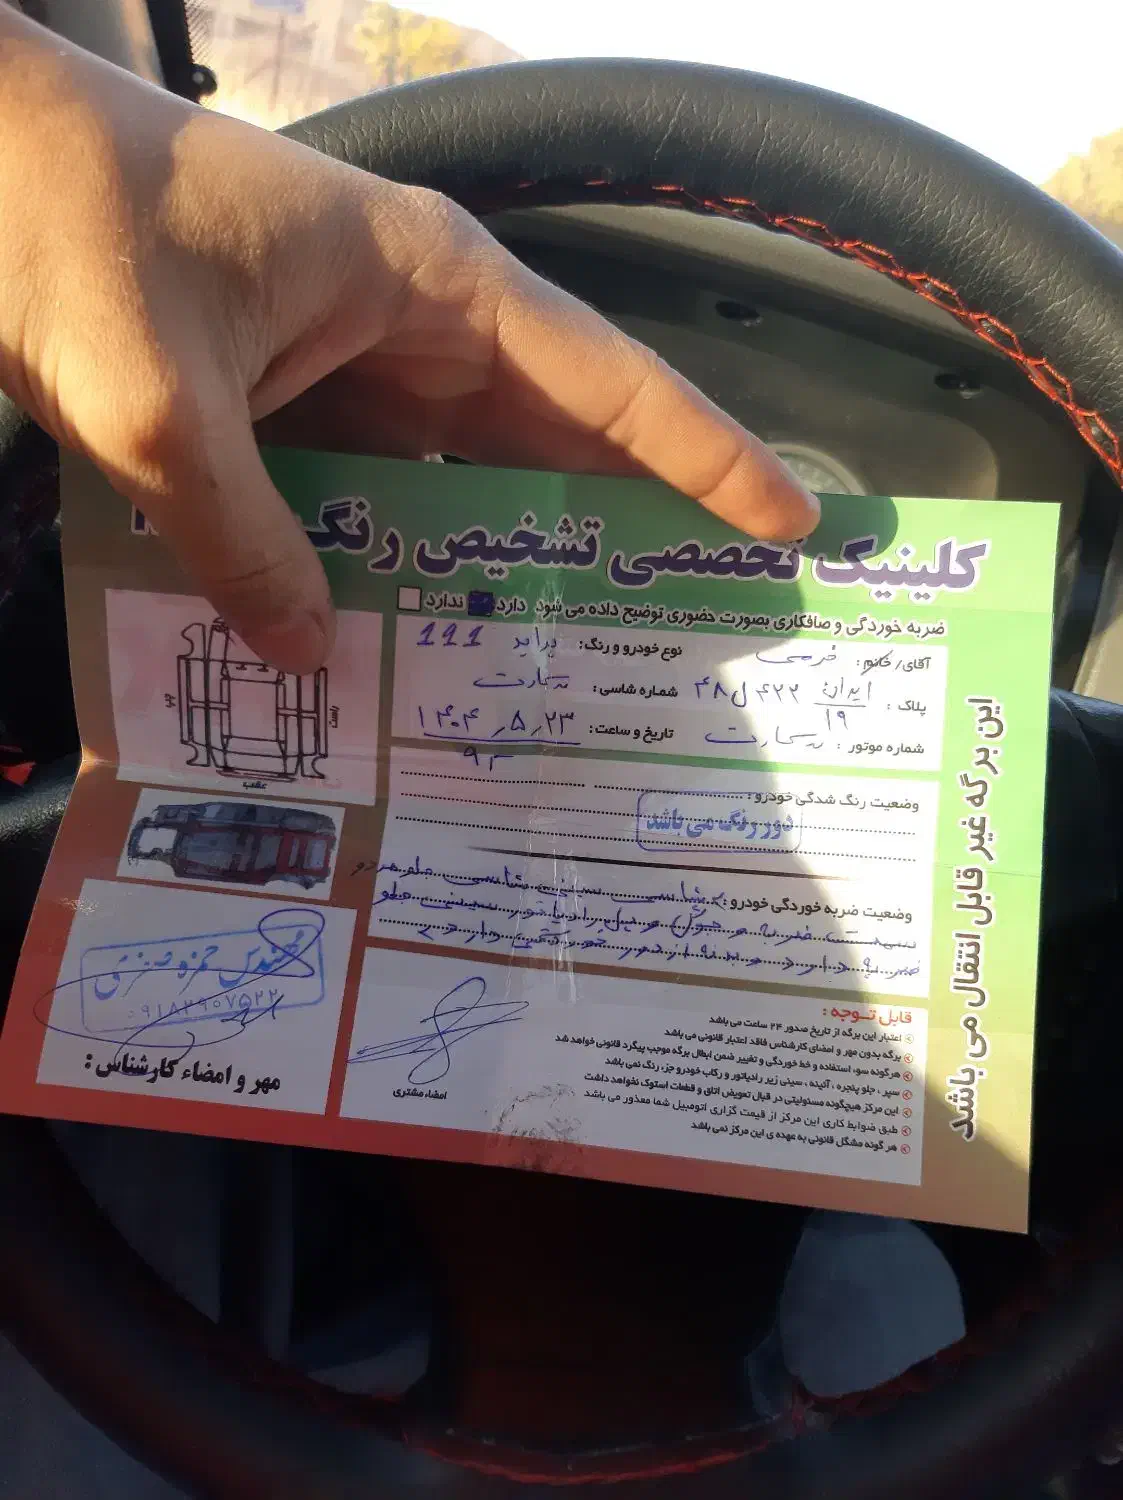 کلینیک تخصصی تشخیص رنگ
ضربه خوردگی و صافکاری بصورت حضوری توضیح داده می شود دارد ندارد
آقای/ خانم: خرمی
نوع خودرو و رنگ: پراید 111
پلاک: ایران ۱۹ ۴۲۲ ل ۴۸
شماره شاسی:
شماره موتور:
تاریخ و ساعت: ۱۴۰۴٫۵٫۲۳
وضعیت رنگ شدگی خودرو:
دور رنگ می باشد
وضعیت ضربه خوردگی خودرو: شاسی سینی شاسی جلو هر دو
سمت ضربه و رادیاتور سینی جلو
ضربه دارد خوردگی دارد
چپ
راست
عقب
مهندس حمزه
مهر و امضاء کارشناس:
امضاء مشتری
قابل توجه:
اعتبار این برگه از تاریخ صدور ۲۴ ساعت می باشد
برگه بدون مهر و امضای کارشناس فاقد اعتبار قانونی می باشد
هرگونه سوء استفاده و خط خوردگی و تغییر ضمن ابطال برگه موجب پیگرد قانونی خواهد شد
سپر ، جلو پنجره ، آئینه ، سینی زیر رادیاتور و رکاب خودرو جزء رنگ نمی باشد
این مرکز هیچگونه مسئولیتی در قبال تعویض اتاق و قطعات استوک نخواهد داشت
طبق ضوابط کاری این مرکز از قیمت گزاری اتومبیل شما معذور می باشد
هر گونه مشکل قانونی به عهده ی این مرکز نمی باشد
این برگه غیر قابل انتقال می باشد